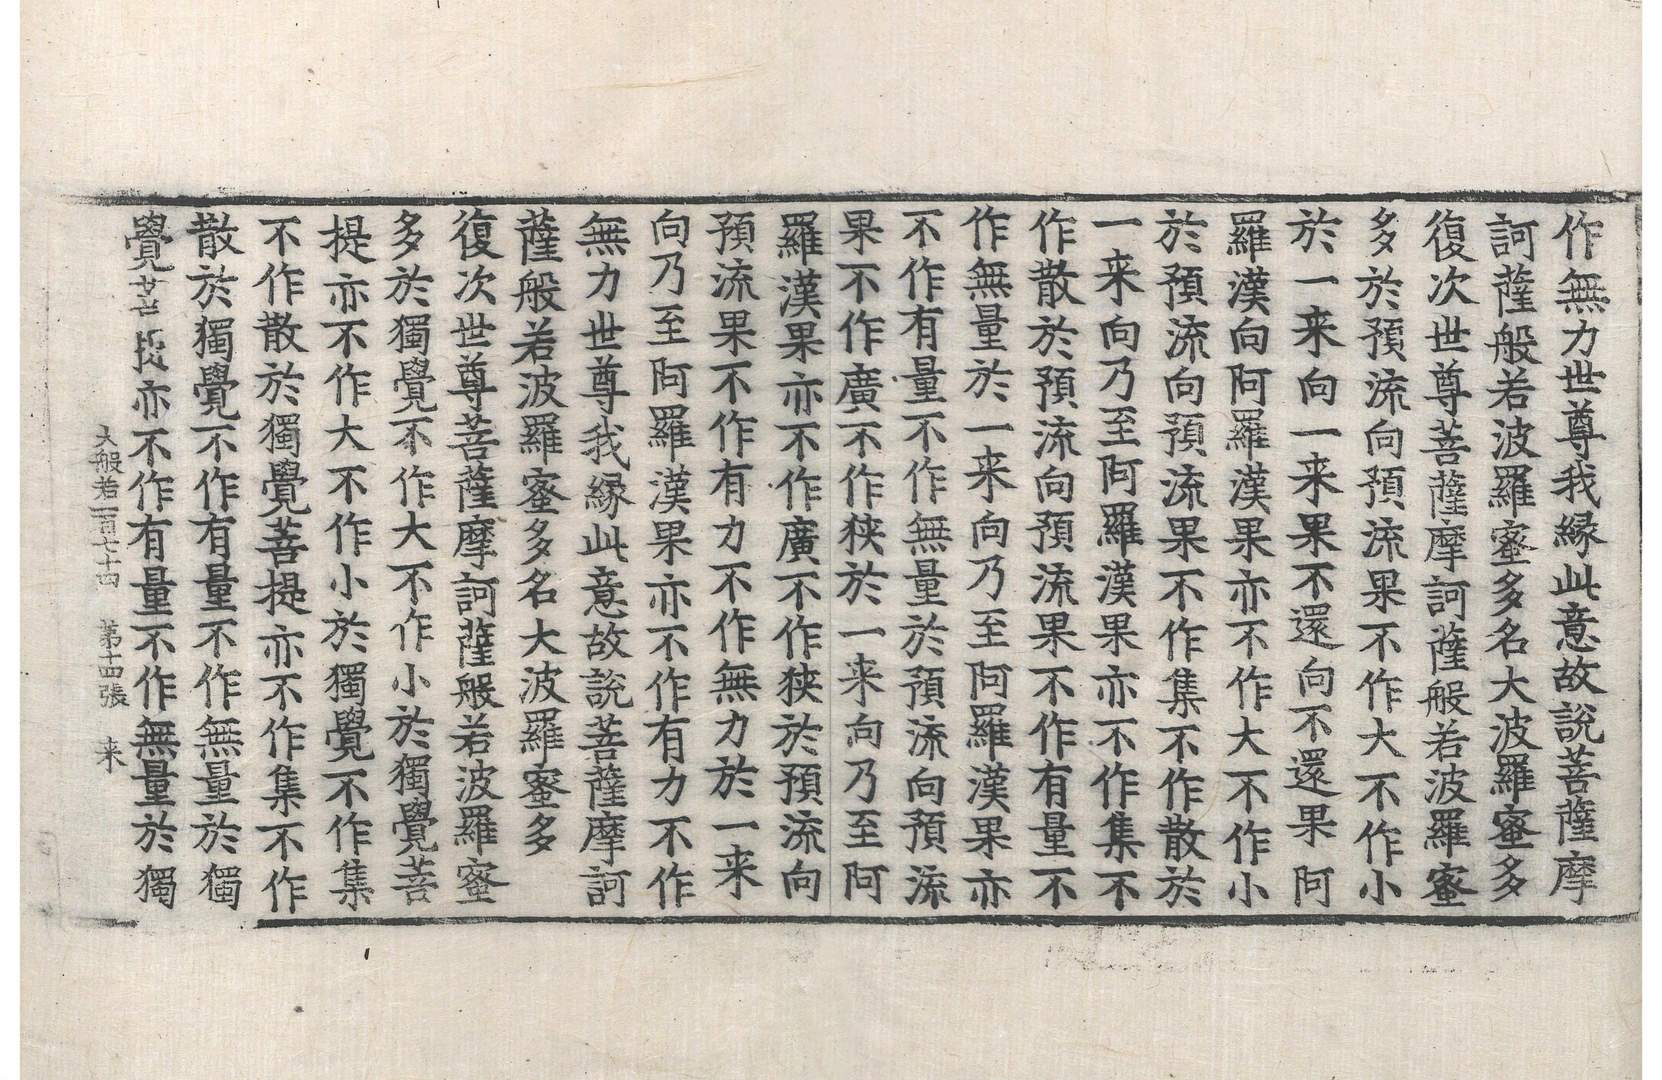 作無力世尊我縁此意故說菩薩摩
訶薩般若波羅蜜多名大波羅蜜多
復次世尊菩薩摩訶薩般若波羅蜜
多於預流向預流果不作大不作小
於一来向一来果不還向不還果阿
羅漢向阿羅漢果亦不作大不作小
於預流向預流果不作集不作散於
一来向乃至阿羅漢果亦不作集不
作散於預流向預流果不作有量不
作無量於一来向乃至阿羅漢果亦
不作有量不作無量於預流向預流
果不作廣不作狹於一来向乃至阿
羅漢果亦不作廣不作狹於預流向
預流果不作有力不作無力於一来
向乃至阿羅漢果亦不作有力不作
無力世尊我縁此意故說菩薩摩訶
薩般若波羅蜜多名大波羅蜜多
復次世尊菩薩摩訶薩般若波羅蜜
多於獨覺不作大不作小於獨覺菩
提亦不作大不作小於獨覺不作集
不作散於獨覺菩提亦不作集不作
散於獨覺不作有量不作無量於獨
覺菩提亦不作有量不作無量於獨
大般若一百七十四 第十四張 来